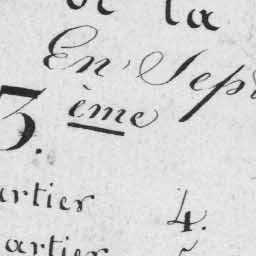 de la
En Sept
3.ème
artier 4.
artier 5